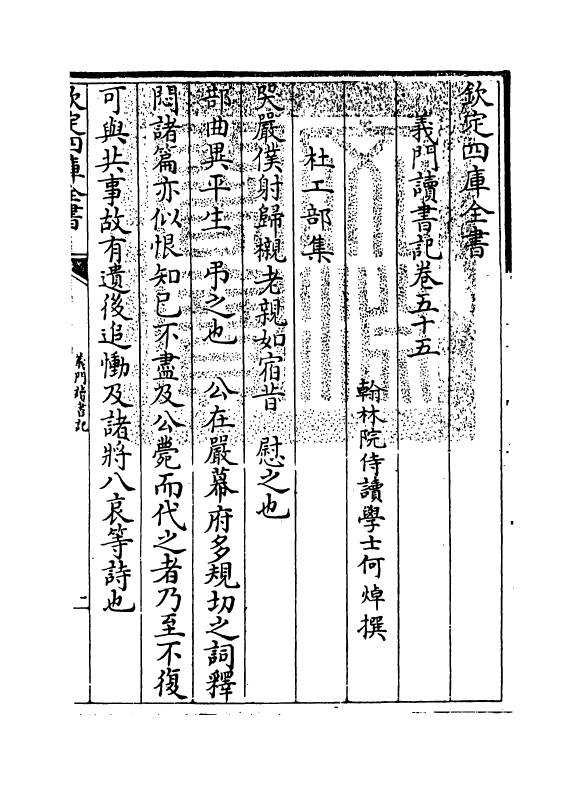 欽定四庫全書
義門讀書記卷五十五
翰林院侍讀學士何焯撰
杜工部集
哭嚴僕射歸櫬老親如宿昔 慰之也
部曲異平生 弔之也 公在嚴幕府多規切之詞釋
悶諸篇亦似恨知已不盡及公薨而代之者乃至不復
可與共事故有遺後追慟及諸將八哀等詩也
欽定四庫全書
義門讀書記